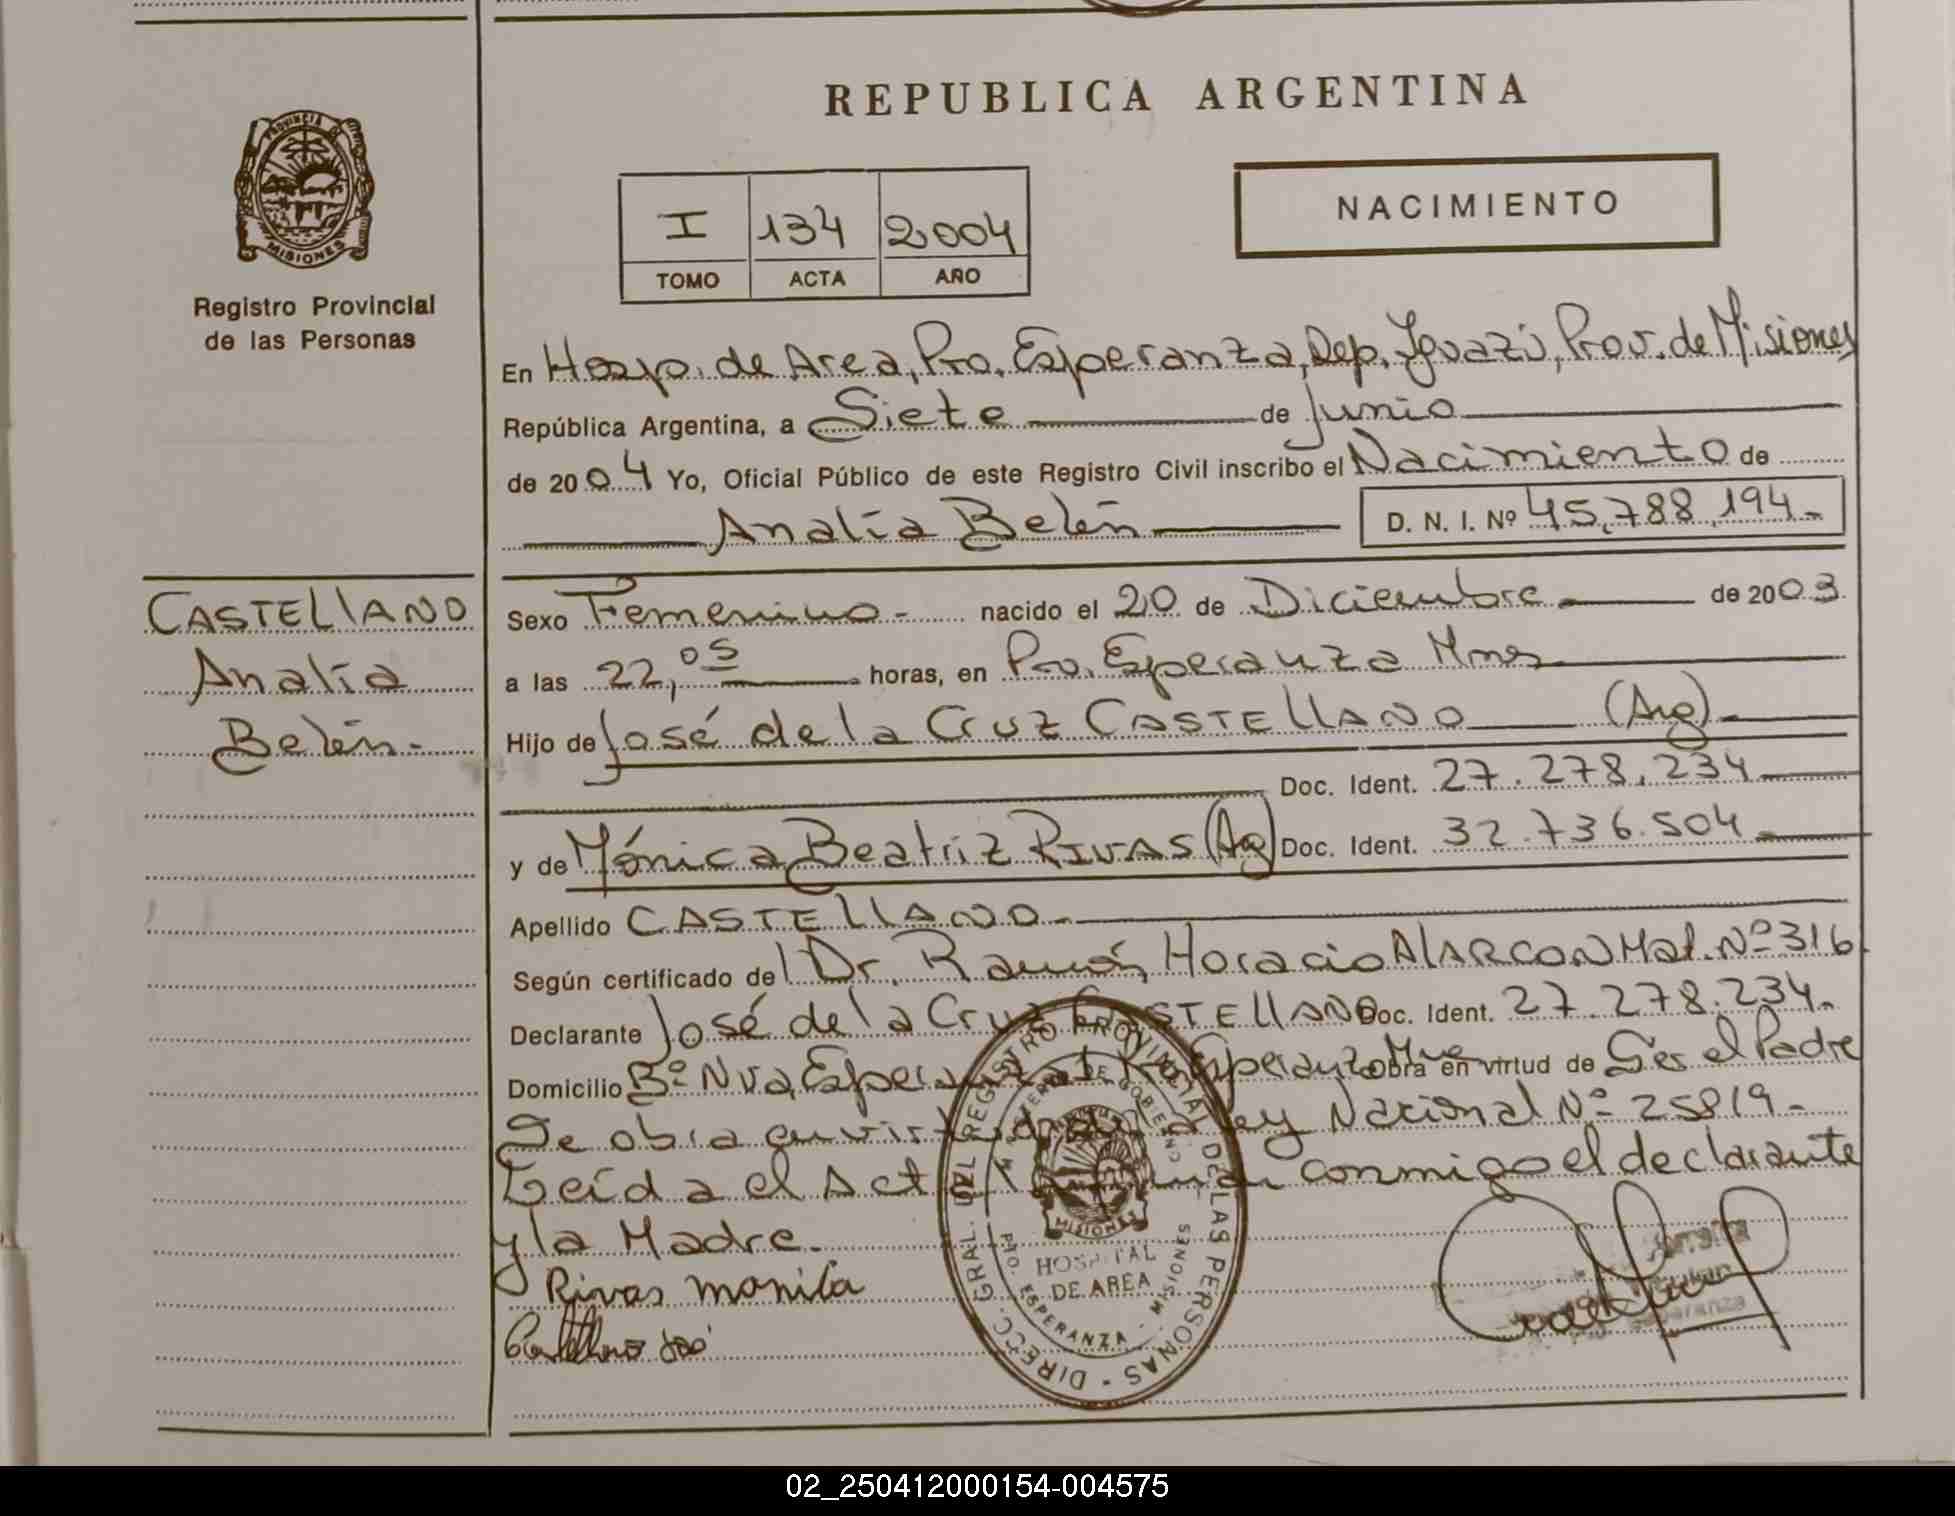 REPUBLICA ARGENTINA
PROVINCIA DE
MISIONES
Registro Provincial
de las Personas
I 134 2004
TOMO ACTA AÑO
NACIMIENTO
En Hosp. de Area, Pto. Esperanza, Dep. Iguazú, Prov. de Misiones
República Argentina, a Siete de Junio
de 2004 Yo, Oficial Público de este Registro Civil inscribo el Nacimiento de
Analía Belén D. N. I. Nº 45,788,194.-
CASTELLANO
Analía
Belén.-
Sexo Femenino.- nacido el 20 de Diciembre de 2003
a las 22,05 horas, en Pto. Esperanza Mnes
Hijo de José de la Cruz CASTELLANO (Arg)
Doc. Ident. 27.278.234
y de Mónica Beatríz RIVAS (Arg) Doc. Ident. 32.736.504
Apellido CASTELLANO
Según certificado del Dr. Ramón Horacio ALARCON Mat. Nº 316
Declarante José de la Cruz CASTELLANO Doc. Ident. 27.278.234.
Domicilio Bº Nva. Esperanza Pto. Esperanza Mnes Obra en virtud de Ser el Padre
Se obra en virtud de la Ley Nacional Nº 25819-
Leída el Acta conmigo el declarante
y la Madre.
Rivas monica
Castellano José
DIRECC. GRAL. DEL REGISTRO PROVINCIAL DE LAS PERSONAS
DE GOBIERNO
MISIONES
HOSPITAL
DE AREA
PTO. ESPERANZA - MISIONES
02_250412000154-004575